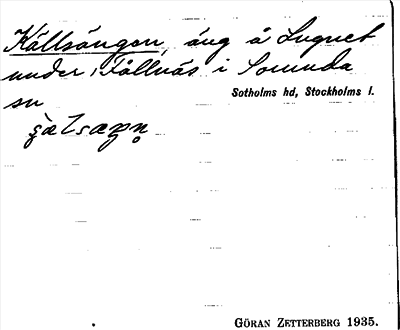 Källsängen, äng å Lugnet
under Fållnäs i Sorunda
sn
Sotholms hd, Stockholms l.
GÖRAN ZETTERBERG 1935.